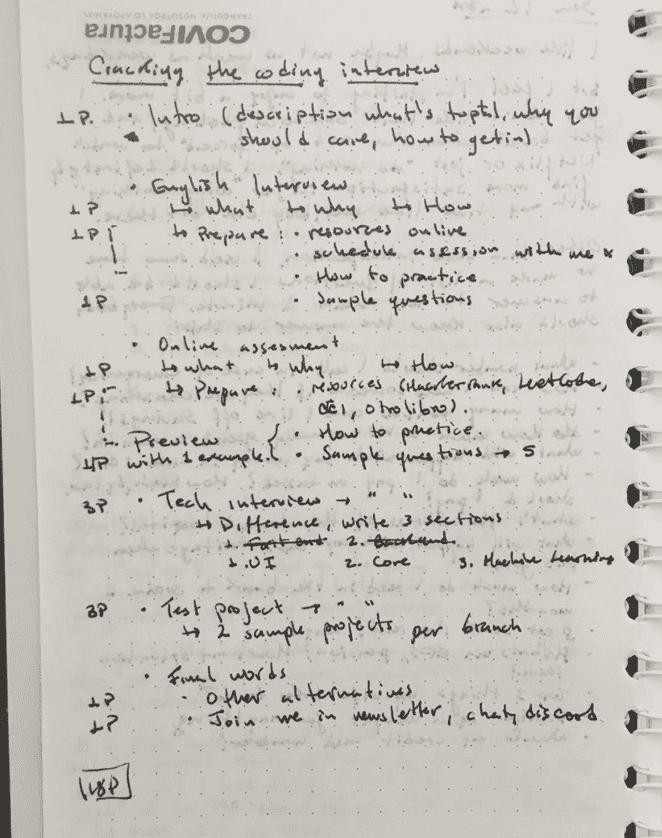 COVIFactura
Cracking the coding interview
1P. · Intro (description what's toptal, why you
should care, how to get in)
· English Interview
1P ↳ what ↳ why ↳ How
1P ↳ Prepare : · resources online
· schedule a session with me *
· How to practice
1P · Sample questions
· Online assesment
1P ↳ what ↳ why ↳ How
1P ↳ Prepare : · resources (Hackerrank, LeetCode,
CCI, otro libro).
Preview { · How to practice.
with 1 example. · Sample questions → 5
3P · Tech interview → " "
↳ Difference, write 3 sections
1. Front end 2. Backend
1. UI 2. Core 3. Machine Learning
3P · Test project → " "
↳ 2 sample projects per branch
· Final words
1P · Other alternatives
1P · Join me in newsletter, chat, discord
18P